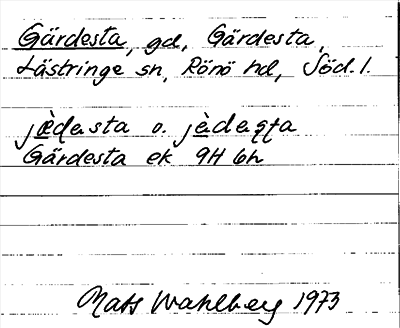 Gärdesta, gd, Gärdesta,
Lästringe sn, Rönö hd, Söd. l.
jæ̀ḍesta o. jæ̀ḍesta
Gärdesta ek 9H 6h
Mats Wahlberg 1973